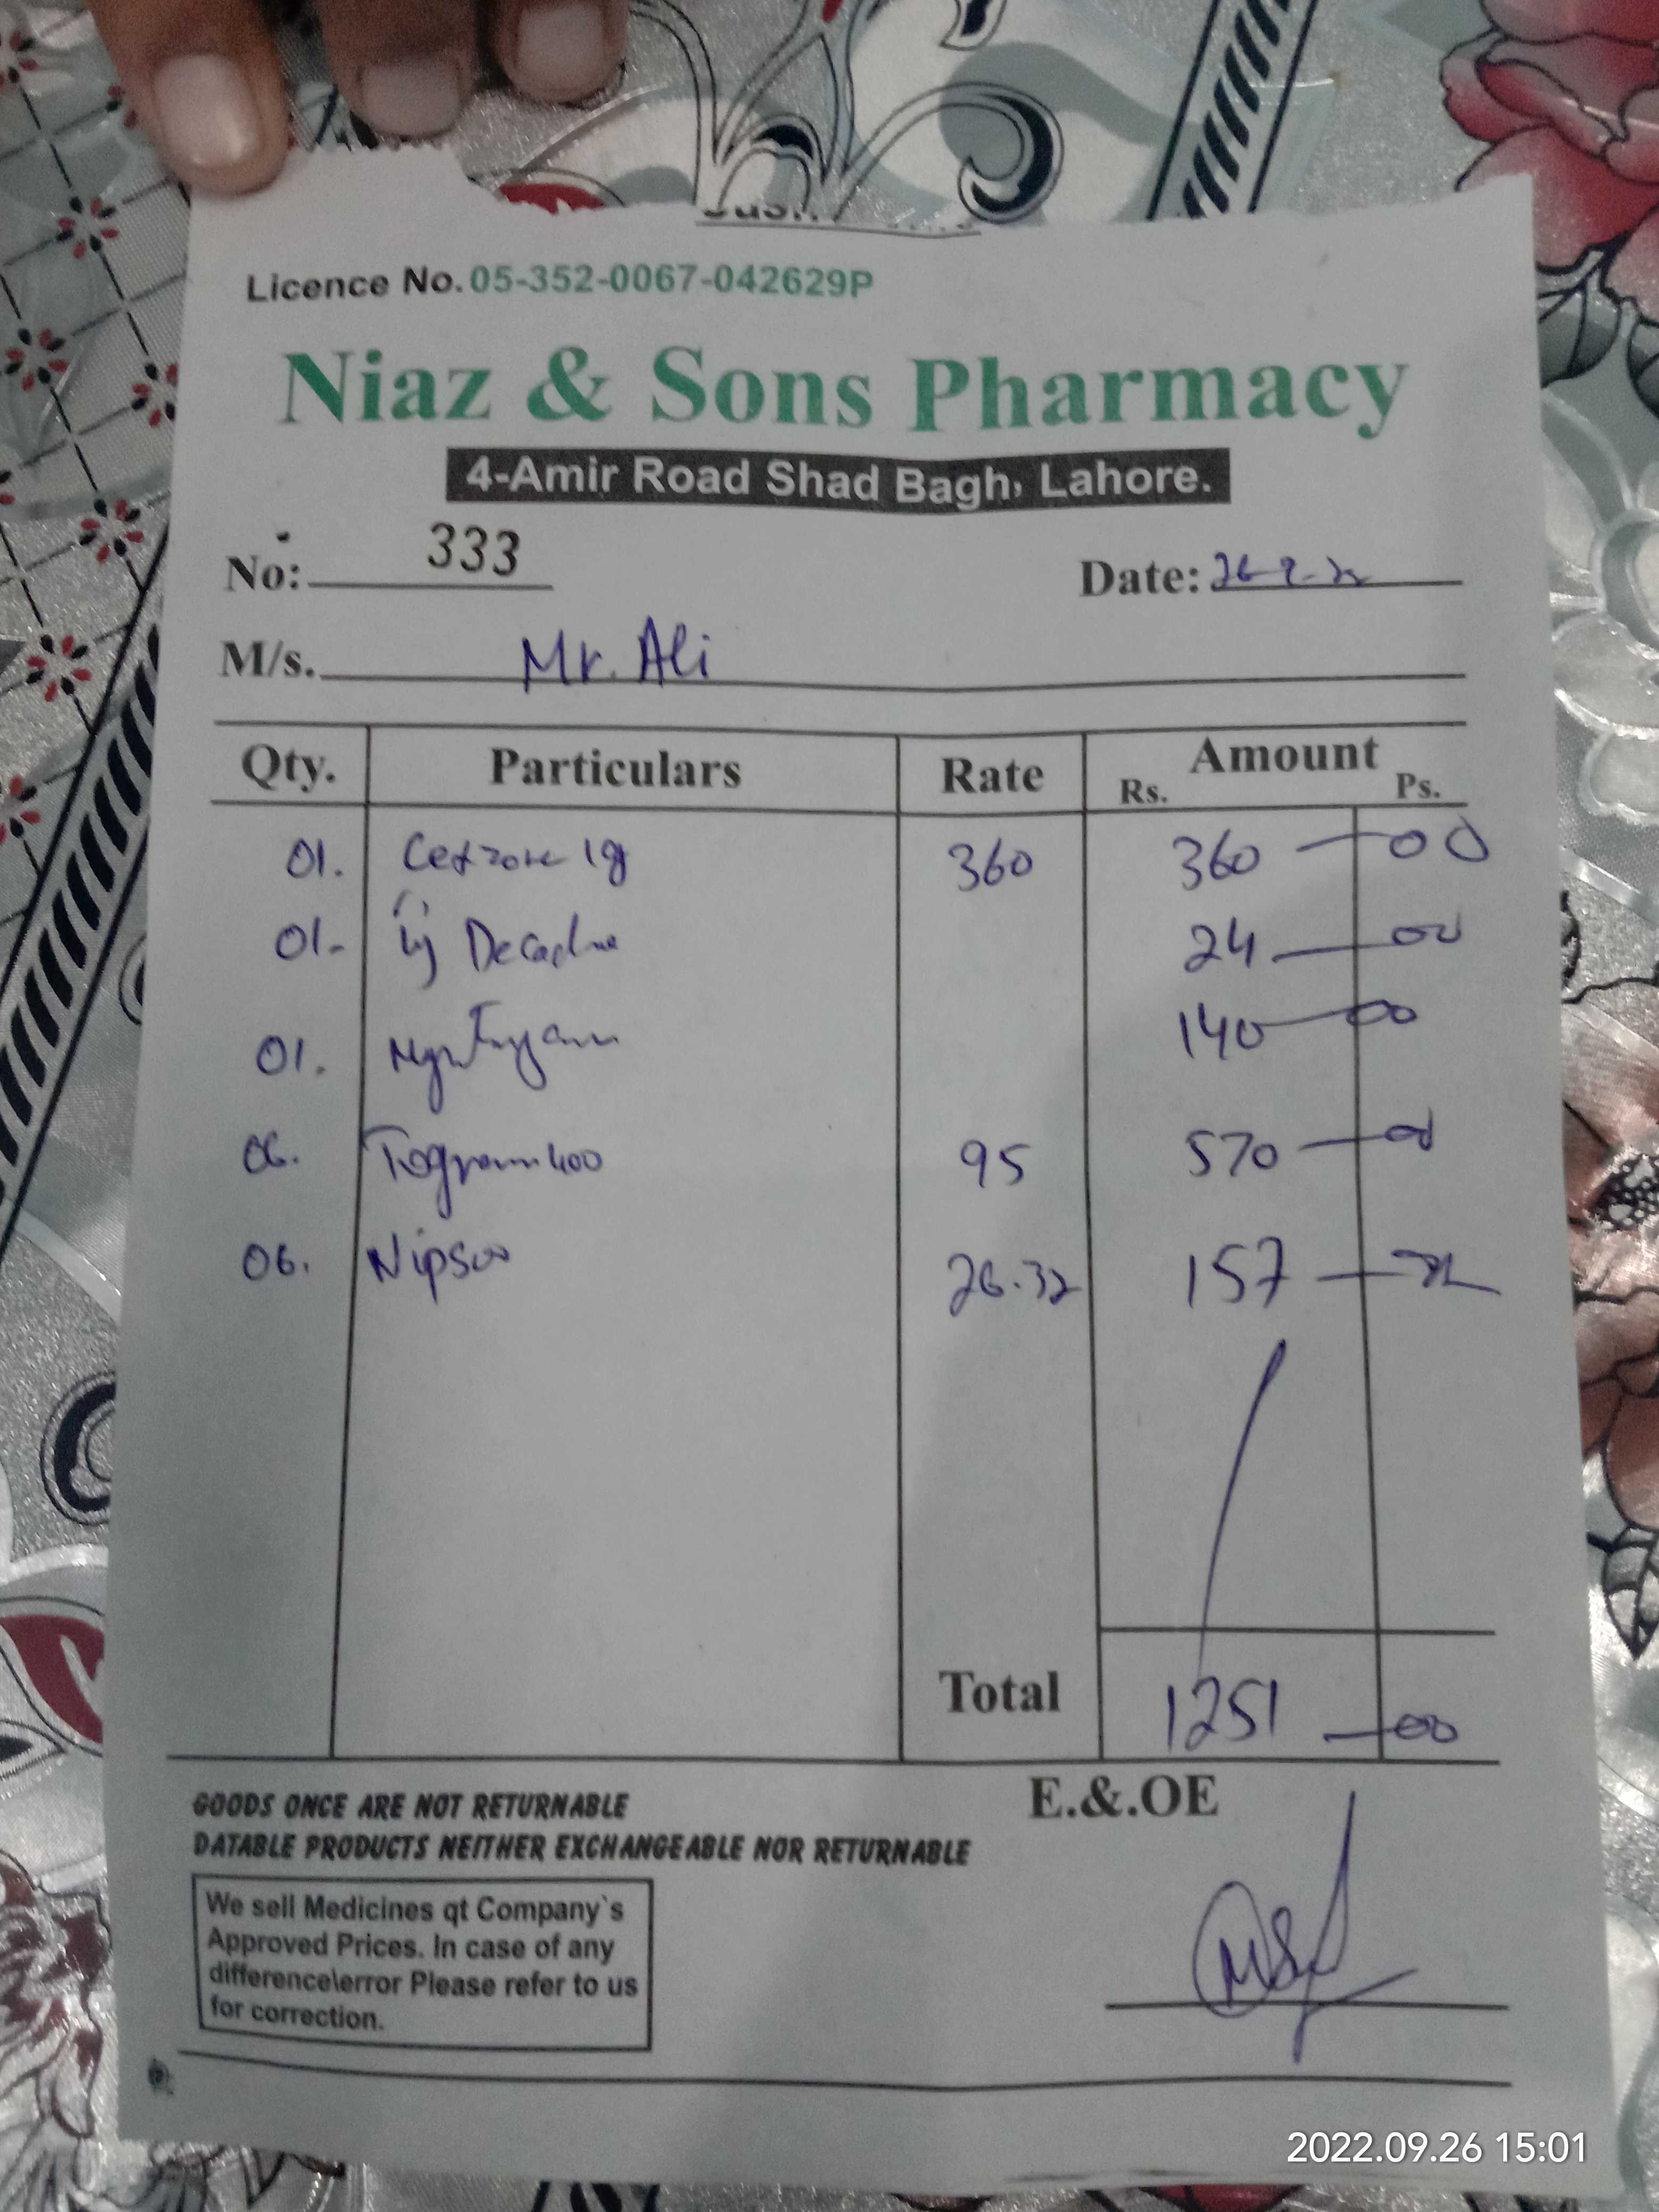 Licence No. 05-352-0067-042629P
Niaz & Sons Pharmacy
4-Amir Road Shad Bagh, Lahore.
No: 333 Date: 26-9-22
M/s. Mr. Ali
Qty. Particulars Rate Amount
Rs. Ps.
01. 1g 360 360 — 00
01- Inj Decadron 24 — 00
01. 140 — 00
06. 400 95 570 — 00
06. 26.32 157 —
Total 1251 — 00
E.&.OE
GOODS ONCE ARE NOT RETURNABLE
DATABLE PRODUCTS NEITHER EXCHANGEABLE NOR RETURNABLE
We sell Medicines qt Company`s
Approved Prices. In case of any
difference\error Please refer to us
for correction.
2022.09.26 15:01